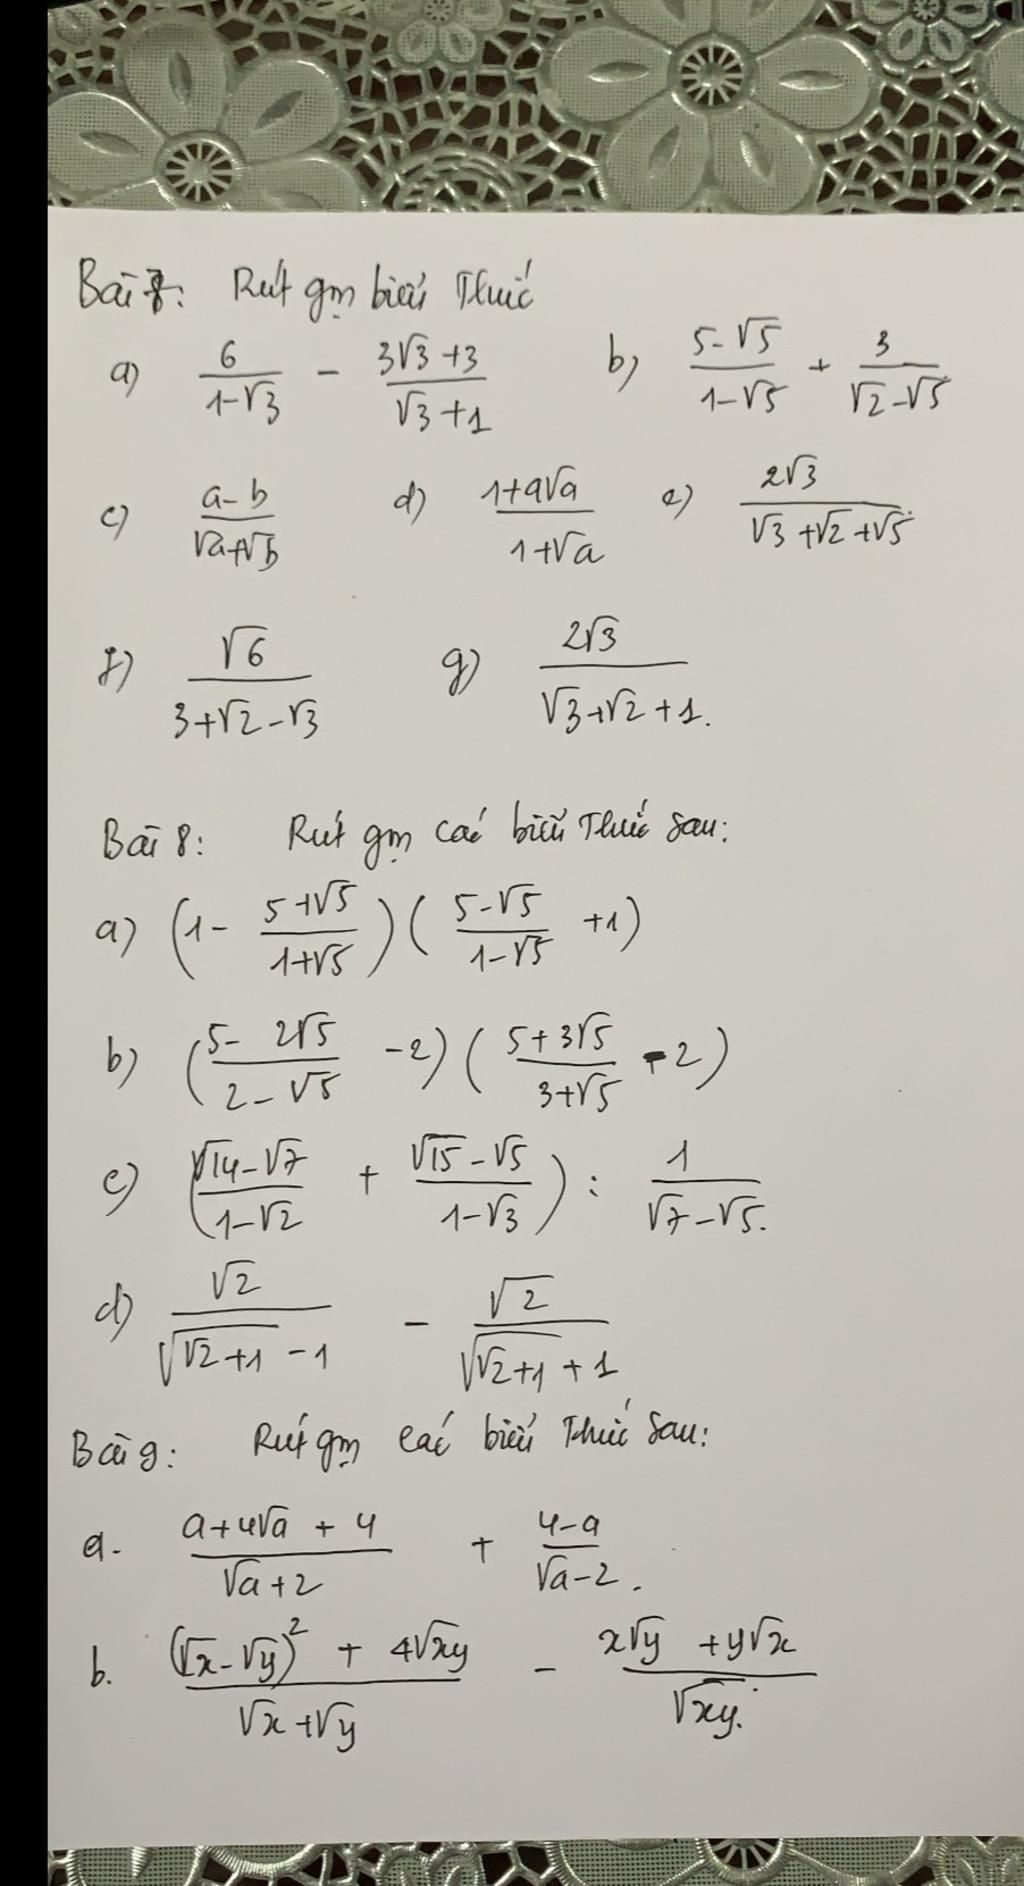 Bài 7: Rút gọn biểu thức
a) 6/(1-√3) - (3√3+3)/(√3+1) b) (5-√5)/(1-√5) + 3/(√2-√5)
c) (a-b)/(√a+√b) d) (1+a√a)/(1+√a) e) 2√3/(√3+√2+√5)
f) √6/(3+√2-√3) g) 2√3/(√3+√2+1).
Bài 8: Rút gọn các biểu thức sau:
a) (1- (5+√5)/(1+√5))((5-√5)/(1-√5) +1)
b) ((5-2√5)/(2-√5) -2)((5+3√5)/(3+√5) -2)
c) ((√14-√7)/(1-√2) + (√15-√5)/(1-√3)) : 1/(√7-√5).
d) √2/(√(√2+1) -1) - √2/(√(√2+1) +1)
Bài 9: Rút gọn các biểu thức sau:
a. (a+4√a+4)/(√a+2) + (4-a)/(√a-2).
b. ((√x-√y)² + 4√xy)/(√x+√y) - (x√y+y√x)/√xy.